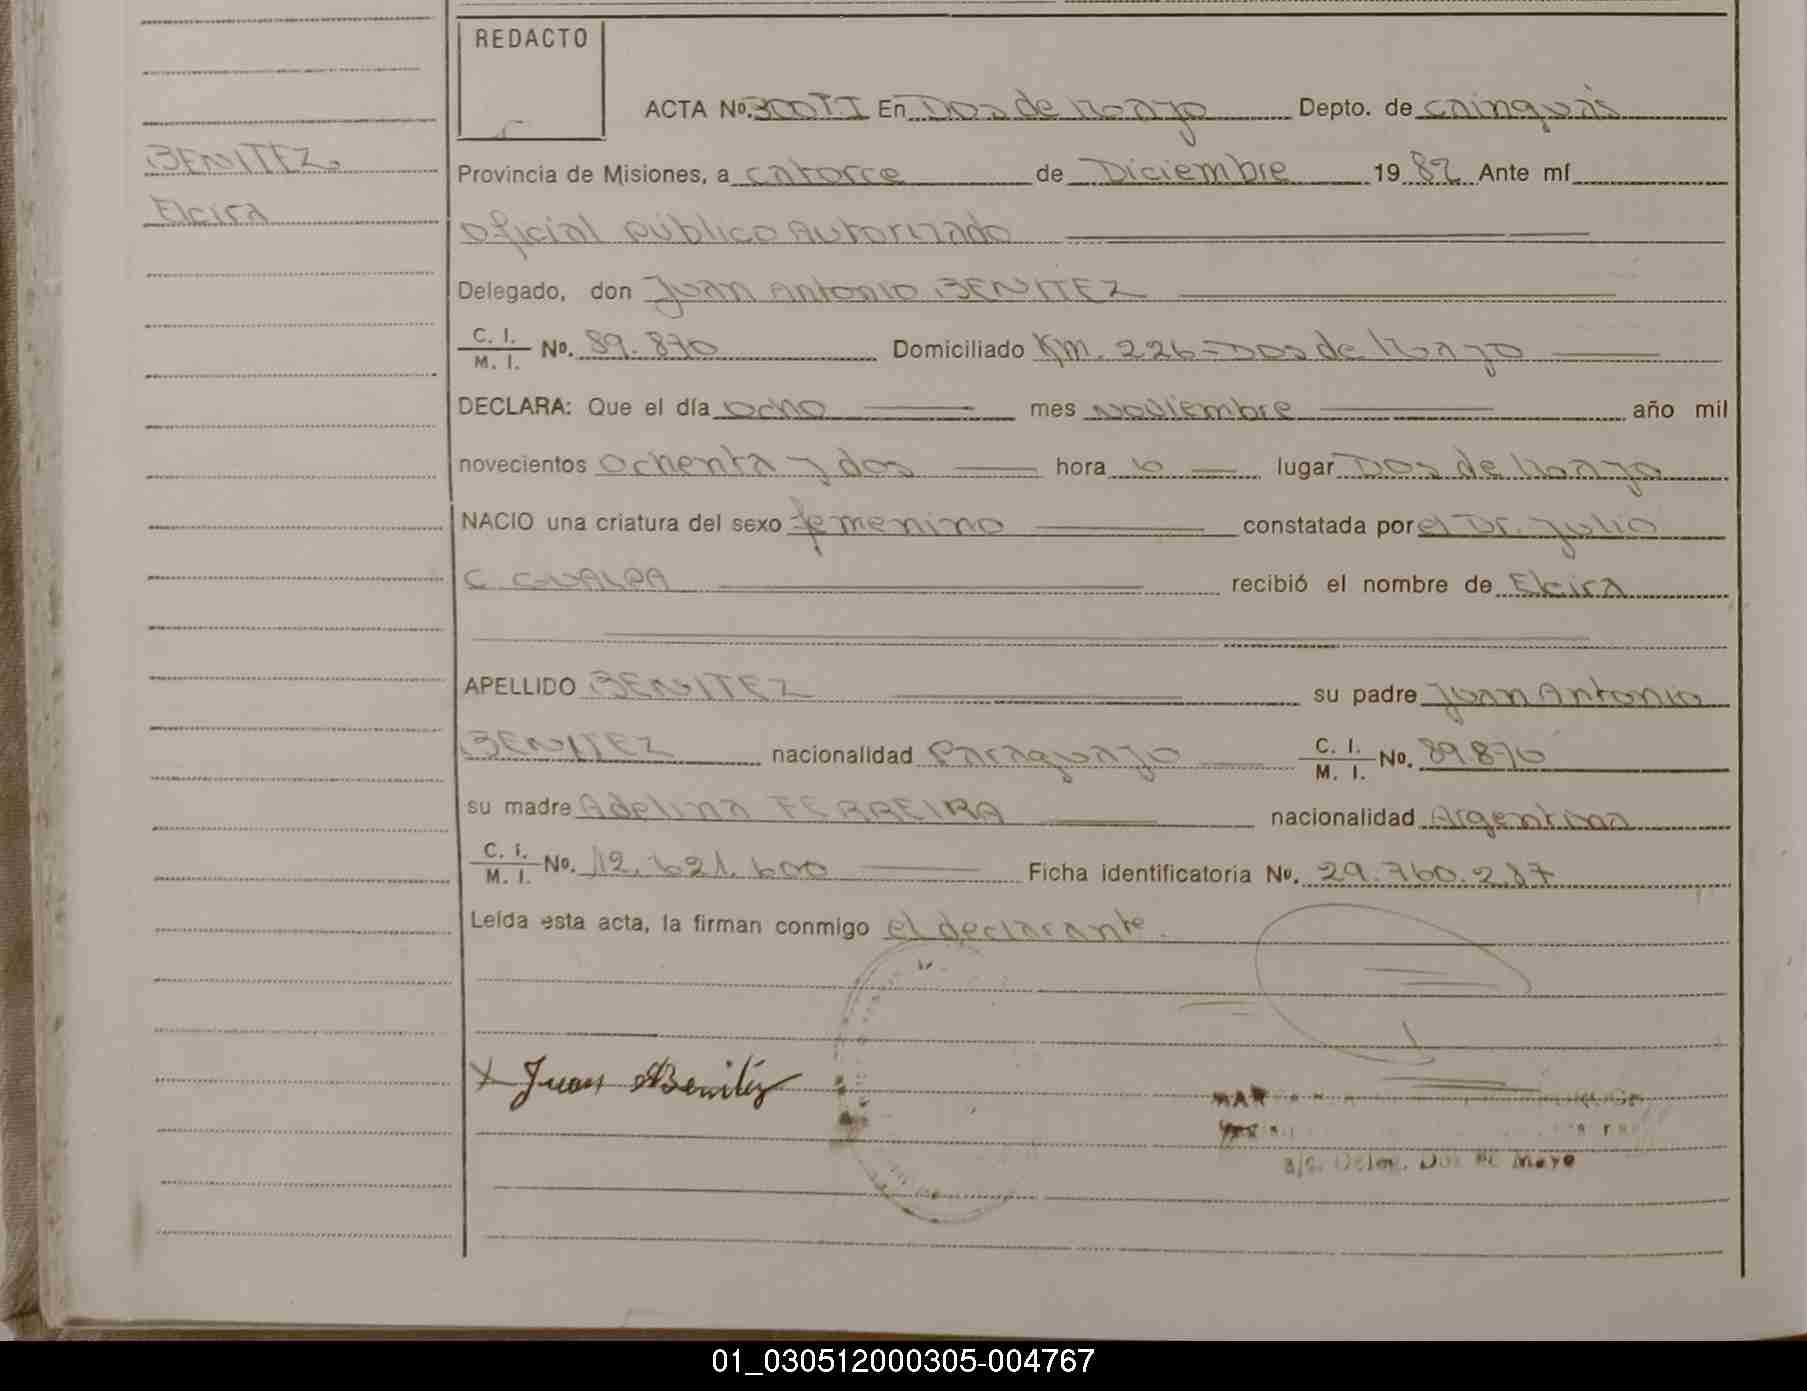 REDACTO
ACTA No. 300 II En Dos de Mayo Depto. de Cainguás
BENITEZ
Provincia de Misiones, a catorce de Diciembre 1982 Ante mí
Elcira
oficial publico Autorizado
Delegado, don Juan Antonio BENITEZ
C. I. / M. I. No. 89.870 Domiciliado Km. 226 - Dos de Mayo
DECLARA: Que el día ocho mes noviembre año mil
novecientos ochenta y dos hora 10 lugar Dos de Mayo
NACIO una criatura del sexo femenino constatada por el Dr. Julio
C GUALPA recibió el nombre de Elcira
APELLIDO BENITEZ su padre Juan Antonio
BENITEZ nacionalidad Paraguayo C. I. / M. I. No. 89.870
su madre Adelina FERREIRA nacionalidad Argentina
C. I. / M. I. No. 12.621.600 Ficha identificatoria No. 29.760.287
Leída esta acta, la firman conmigo el declarante.
X Juan A Benitez
MAR
a/c. Deleg. Dos de Mayo
01_030512000305-004767